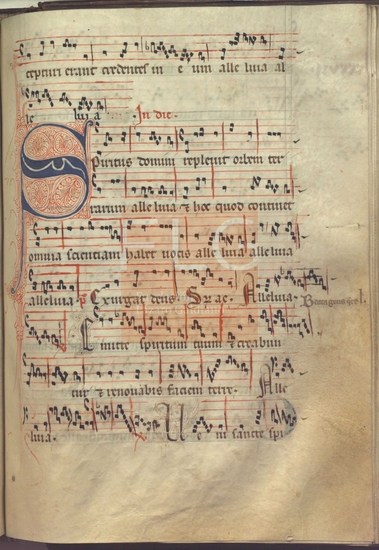 cepturi erant credentes in e um alle luia al
le lu ia In die.
Spiritus domini replevit orbem ter
rarum alleluia & hoc quod continet
omnia scientiam habet vocis alleluia alleluia
alleluia. Exurgat deus. Alleluia
Emitte spiritum tuum & creabun
tur & renovabis faciem terre. Alle
luia. Ueni sancte spi